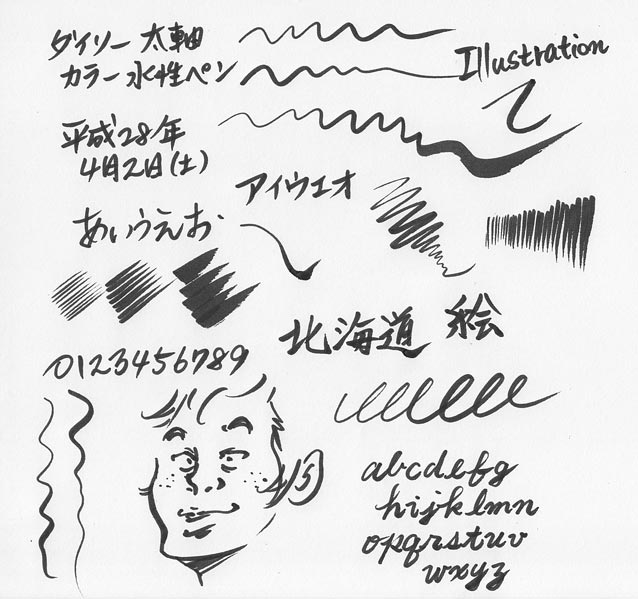 ダイソー 太軸
カラー水性ペン
Illustration
平成28年
4月2日(土)
アイウエオ
あいうえお
北海道 絵
0123456789
abcdefg
hijklmn
opqrstuv
wxyz